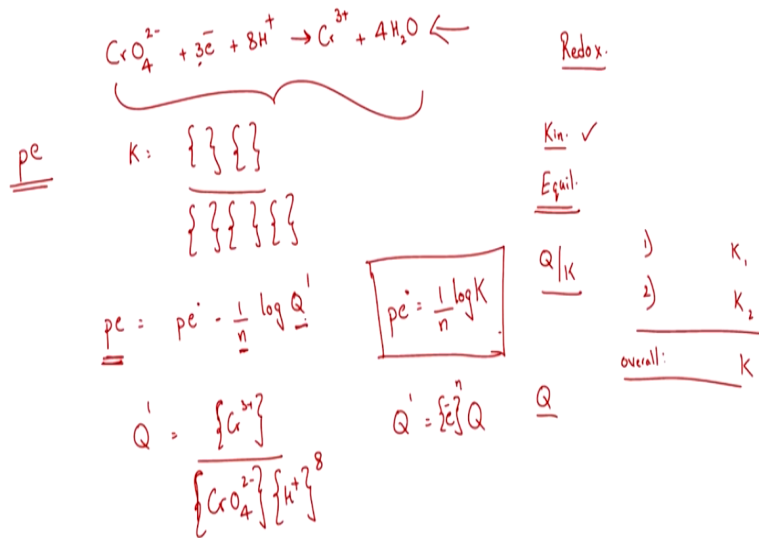 CrO₄²⁻ + 3ē + 8H⁺ → Cr³⁺ + 4H₂O ←
Redox.
pe
K = { } { }
{ } { } { }
Kin. ✓
Equil.
Q/K
1) K₁
2) K₂
overall: K
pe = pe° - 1/n log Q'
pe° = 1/n log K
Q' = {Cr³⁺}
{CrO₄²⁻} {H⁺}⁸
Q' = {ē}ⁿ Q
Q